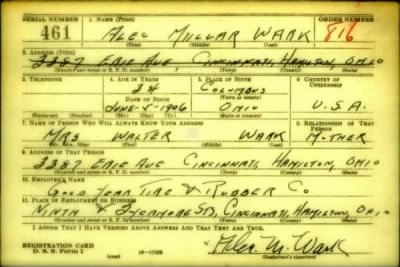 SERIAL NUMBER 1. NAME (Print) ORDER NUMBER
461 ALEC MILLAR WARK 816
(First) (Middle) (Last)
2. ADDRESS (Print)
3387 ERIE AVE, CINCINNATI, HAMILTON, OHIO
3. TELEPHONE 4. AGE IN YEARS 5. PLACE OF BIRTH 6. COUNTRY OF CITIZENSHIP
34 COLUMBUS
DATE OF BIRTH
JUNE-5-1906 OHIO U.S.A.
(Exchange) (Number) (Mo.) (Day) (Yr.) (State or country)
7. NAME OF PERSON WHO WILL ALWAYS KNOW YOUR ADDRESS 8. RELATIONSHIP OF THAT PERSON
MRS WALTER WARK MOTHER
(Mr., Mrs., Miss) (First) (Middle) (Last)
9. ADDRESS OF THAT PERSON
3387 ERIE AVE CINCINNATI, HAMILTON, OHIO
(Number and street or R. F. D. number) (Town) (County) (State)
10. EMPLOYER'S NAME
GOOD YEAR TIRE & RUBBER CO
11. PLACE OF EMPLOYMENT OR BUSINESS
NINTH & SYCAMORE STS, CINCINNATI, HAMILTON, OHIO
(Number and street or R. F. D. number) (Town) (County) (State)
I AFFIRM THAT I HAVE VERIFIED ABOVE ANSWERS AND THAT THEY ARE TRUE.
REGISTRATION CARD
D. S. S. Form 1 (over) Alec M. Wark
(Registrant's signature)